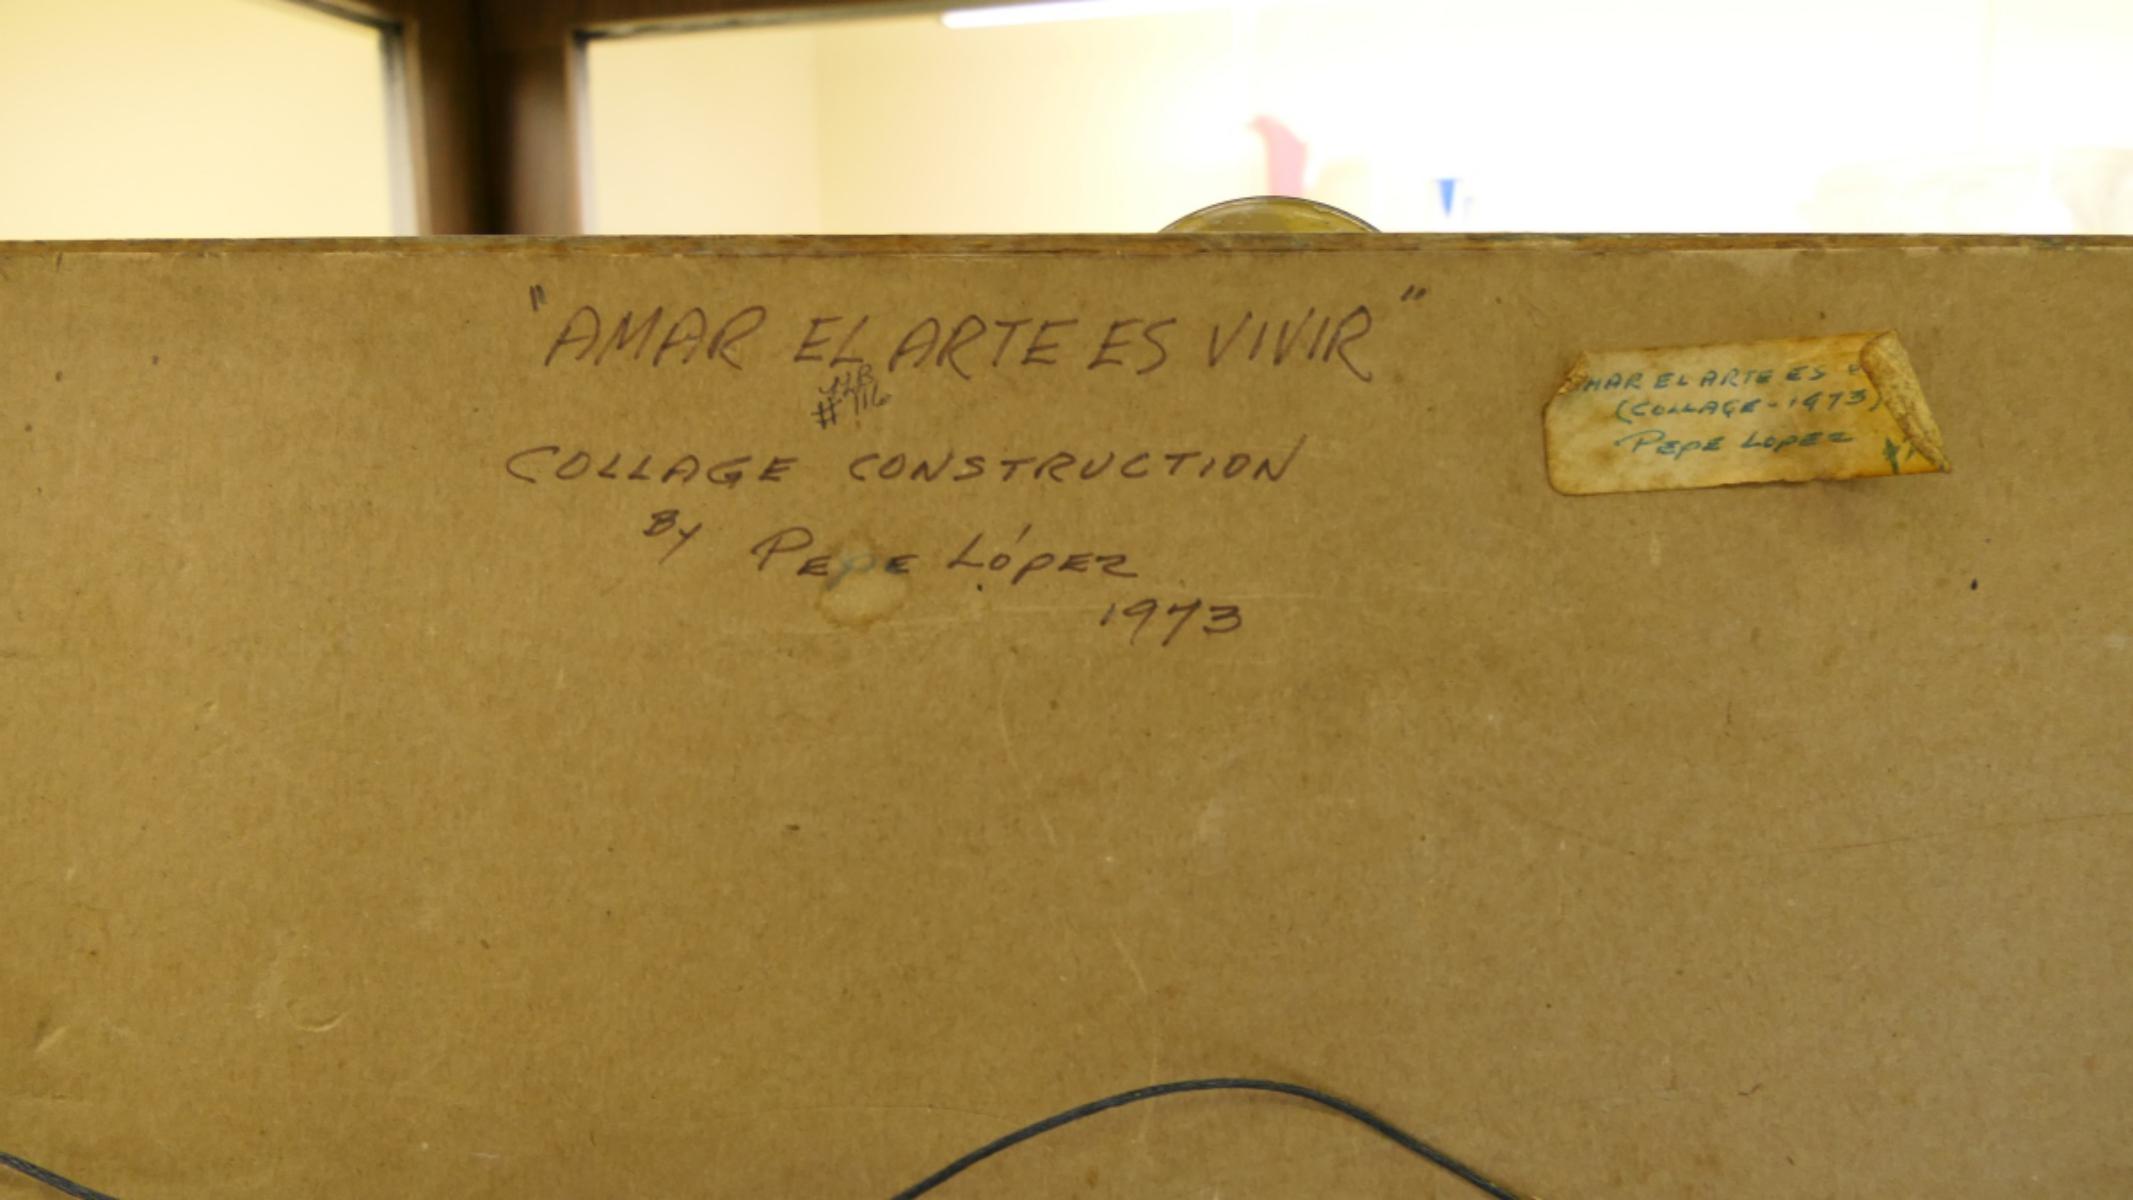 "AMAR EL ARTE ES VIVIR"
COLLAGE CONSTRUCTION
By PEPE LÓPEZ
1973
MAR EL ARTE ES
(COLLAGE - 1973)
PEPE LOPEZ